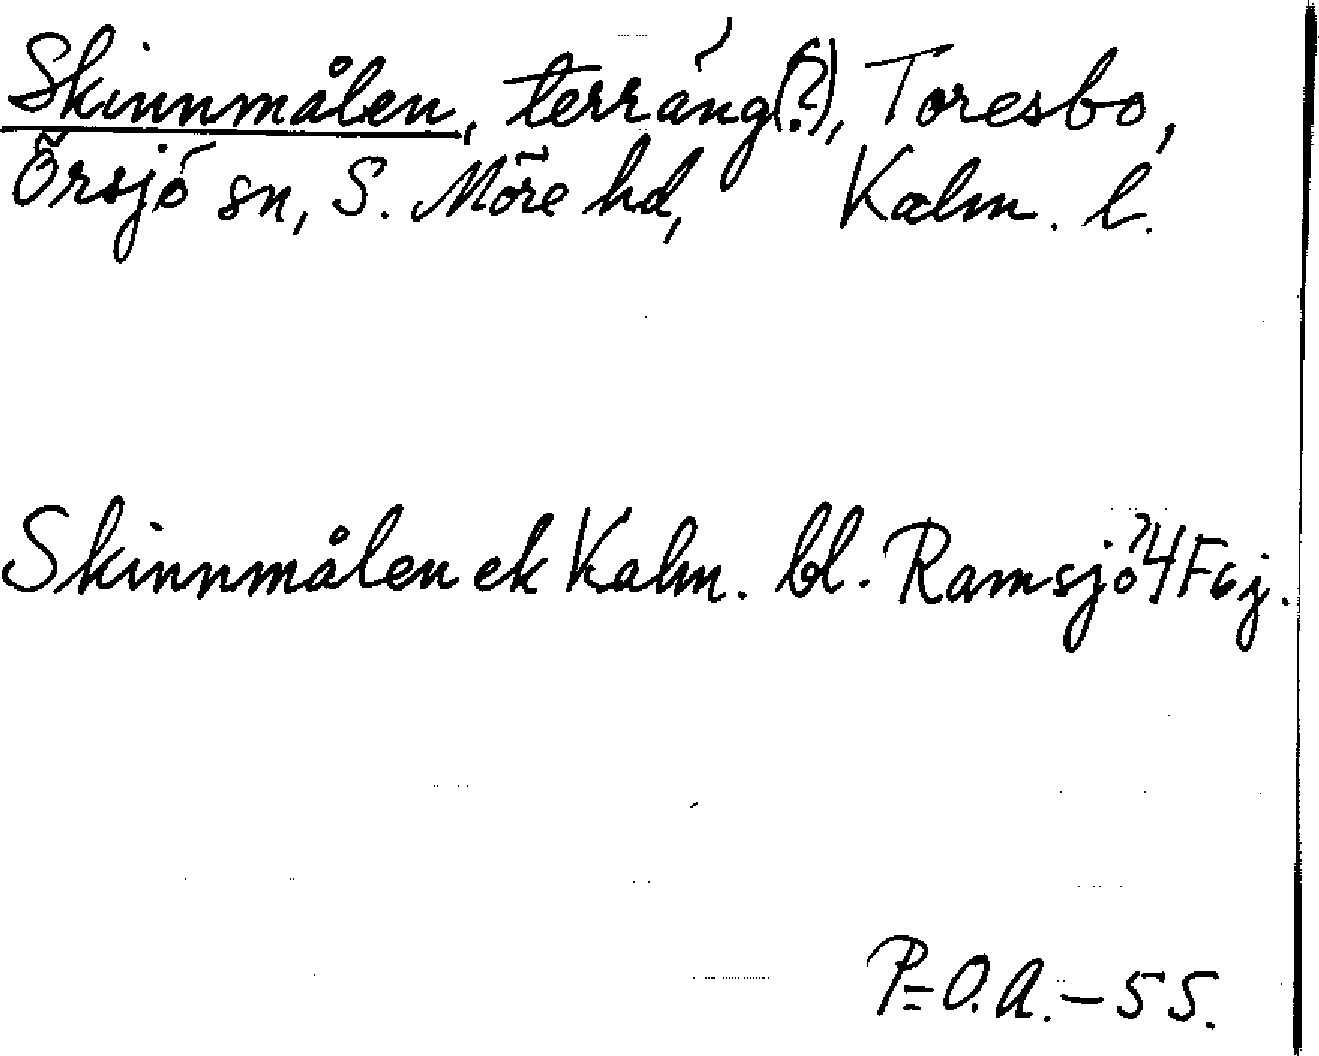 Skinnmålen, terräng(?), Toresbo,
Örsjö sn, S. Möre hd, Kalm. l.
Skinnmålen ek Kalm. bl. Ramsjö 4F6j.
P=O.A.-55.